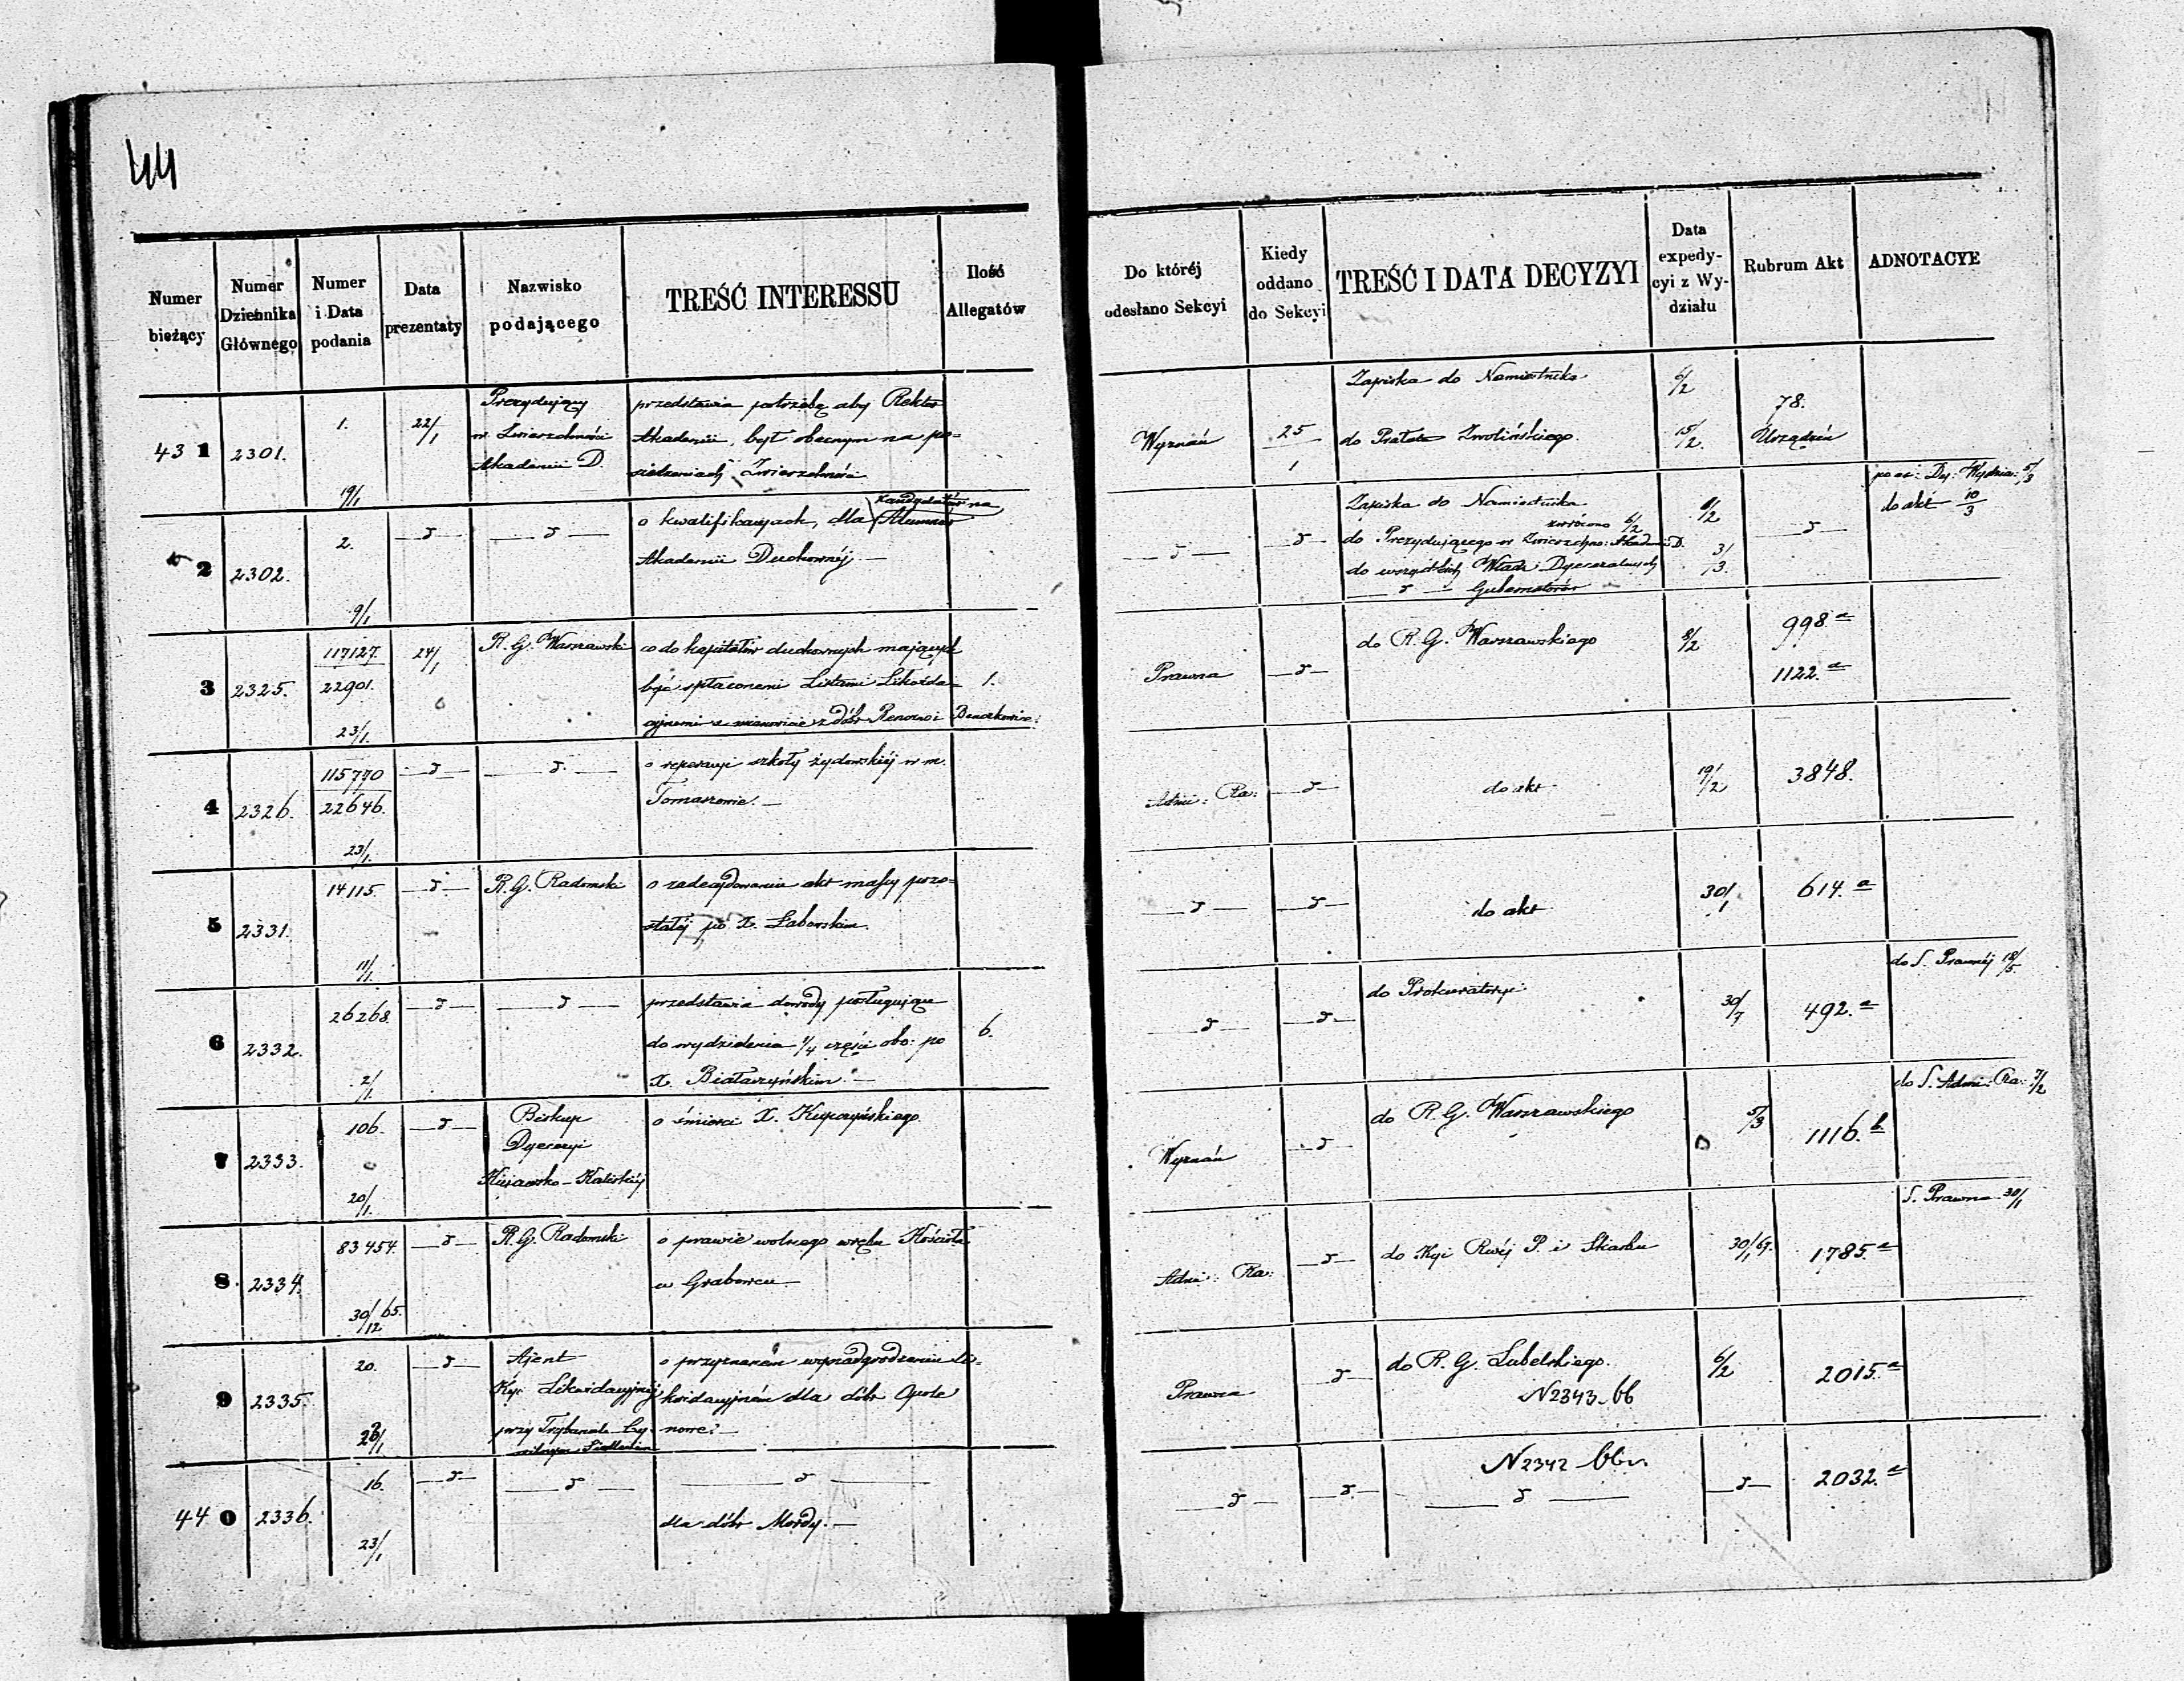 44
Numer bieżący
Numer Dziennika Głównego
Numer i Data podania
Data prezentaty
Nazwisko podającego
TREŚĆ INTERESSU
Ilość Allegatów
Do któréj odesłano Sekcyi
Kiedy oddano do Sekcyi
TREŚĆ I DATA DECYZYI
Data expedycyi z Wydziału
Rubrum Akt
ADNOTACYE
43 1
2301.
1.
19/1
22/1
Prezydujący
w Zwierzchności
Akademii D.
przedstawia potrzebę aby Rektor
Akademii, był obecnym na po=
siedzeniach Zwierzchności
Wyznań
25
1
Zapiska do Namiestnika
6/2
do Prałata Zwolińskiego.
15/2
78.
Urządzeń
2
2302.
2.
9/1
— d —
— d —
o kwalifikacyach, dla kandydatów na Alumnów
Akademii Duchownéj —
— d —
— d —
Zapiska do Namiestnika
zwrócono 6/2
6/2
do Prezydującego w Zwierzchno: Akademii D.
do wszystkich Władz Dyecezalnych
3/3.
— d — Gubernatorów
— d —
Dy: Wydzia: 5/3
do akt 10/3
3
2325.
117127.
22901.
23/1.
24/1
R. G. Warszawski
co do kapitałów duchownych mających
być spłaconemi Listami Likwida=
cyjnemi a mianowicie z dóbr
1.
Prawna
— d —
do R. G. Warszawskiego
8/2
998. a
1122. a
4
2326.
115770
22646.
23/1.
— d —
— d. —
o reperacyi szkoły żydowskiéj w m.
Tomaszowie. —
Admi: Ra:
— d —
do akt
19/2
3848.
5
2331.
14115.
11/1.
— d —
R. G. Radomski
o zadecydowanie akt massy pozo=
stałéj po X. Laborskim.
— d —
— d —
do akt
30/1
614. a
6
2332.
26268.
2/1.
— d —
— d —
przedstawia dowody posługujące
do wydzielenia 1/4 części obo: po
X. Białaczyńskim. —
6.
— d —
— d —
do Prokuratoryi
30/7
492. a
do S. Prawnéj 18/5
7
2333.
106.
20/1.
— d —
Biskup
Dyecezyi
Kujawsko-Kaliskiéj
o śmierci X. Kupczyńskiego
Wyznań
— d —
do R. G. Warszawskiego
5/3
1116. b.
do S. Admi: Ra: 7/2
8.
2334.
83454.
30/12 65.
— d —
R. G. Radomski
o prawie wolnego wrębu Kościoła
w Grabowcu
Admi: Ra:
— d —
do Kyi Rwéj P. i Skarbu
30/1 67.
1785. a
S. Prawna 30/1
9
2335.
20.
26/1
— d —
Ajent
Kyi Likwidacyjnéj
przy Trybunale Cy-
wilnym Siedlec
o przyznaniu wynadgrodzenia li=
kwidacyjném dla dóbr Opole
nowe. —
Prawna
— d —
do R. G. Lubelskiego.
N 2343. bb
6/2
2015. a
44 0
2336.
16.
23/1
— d —
— d —
— d —
dla dóbr Mordy. —
— d —
— d —
N 2342 bb
— d —
— d —
2032. a